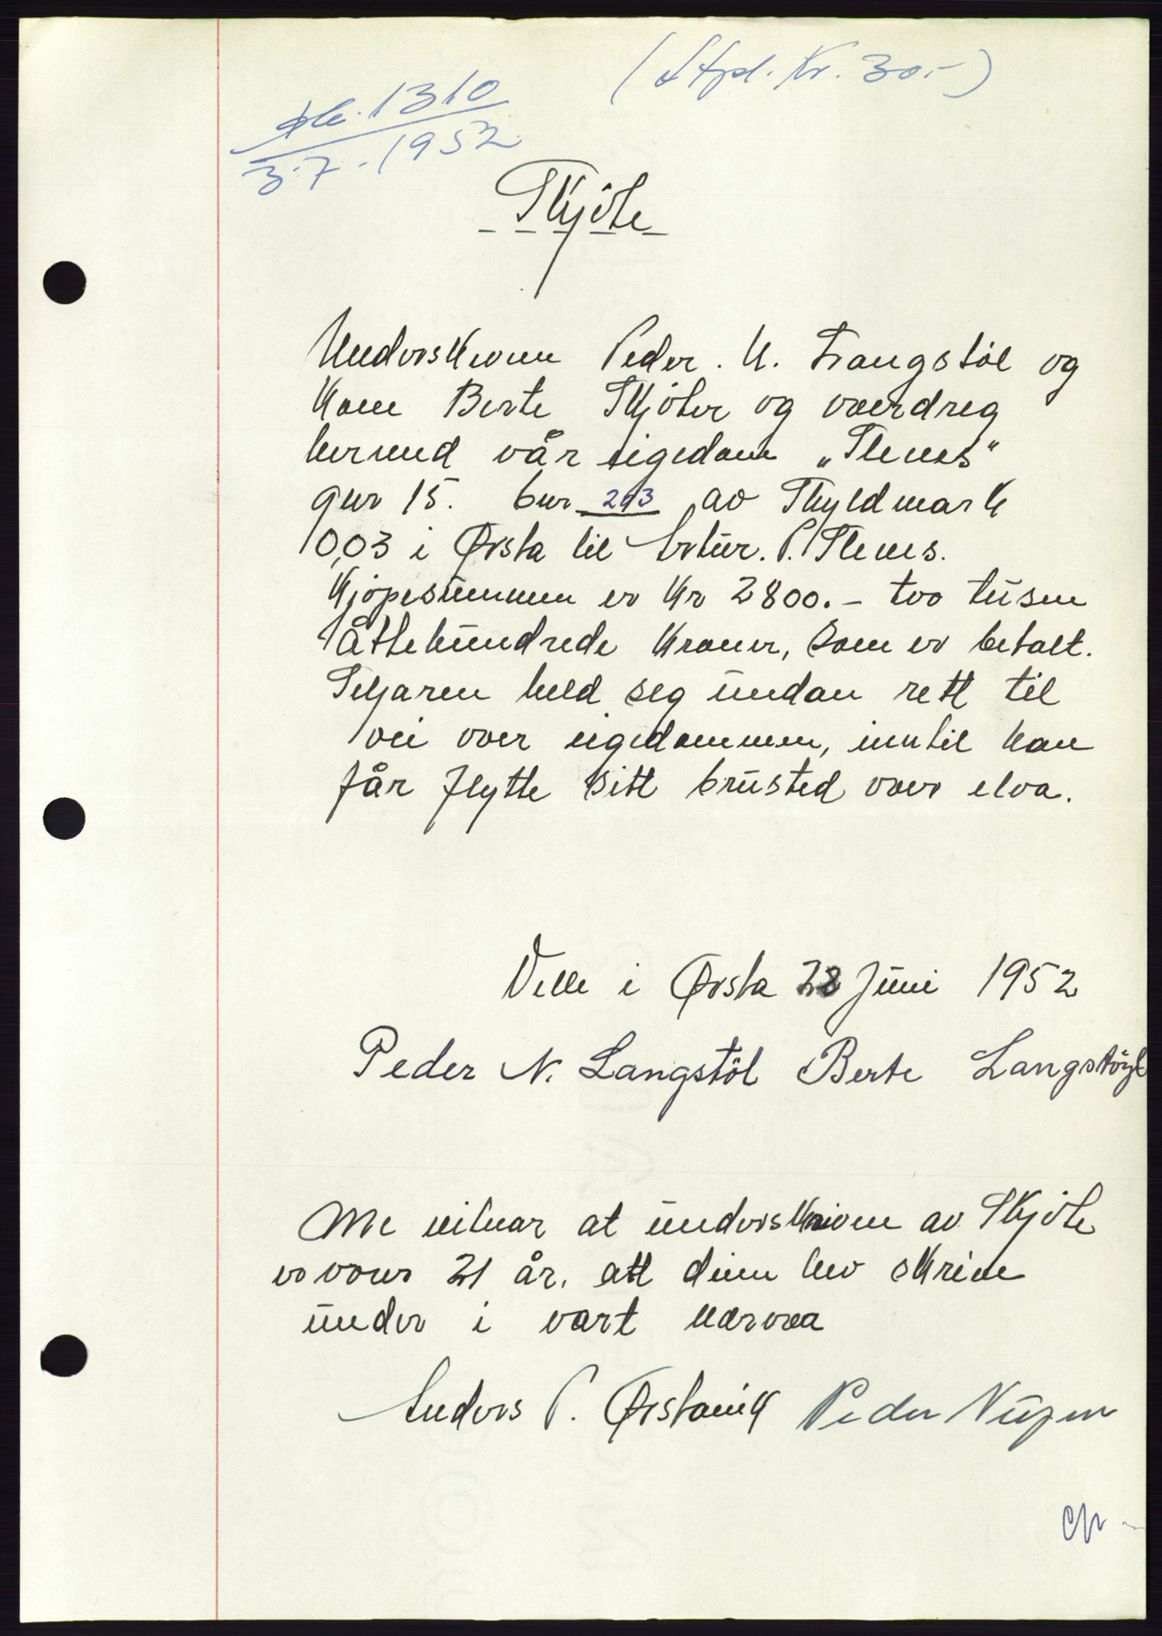 (Stpl. Kr. 30.-)
db. 1310
3.7.1952
Skjöte
Underskrevne Peder. N. Langstöl og
kone Berte Skjöter og overdreg
herved vår eigedom „Flems"
gnr 15. bnr 293 av Skyldmark
0,03 i Ørsta til Artur. P. Flems.
Kjöpesummen er kr 2800.- too tusen
åttehundrede kroner, som er betalt.
Seljaren held seg undan rett til
vei over eigedommen, inntil han
får flytte sitt brusted over elva.
Velle i Ørsta 28 Juni 1952
Peder N. Langstöl Berte Langstöyl
Me vitnar at underskrivne av Skjöte
er over 21 år. att dene hev skrive
under i vart nærvær
Anders P. Ørstavik Peder